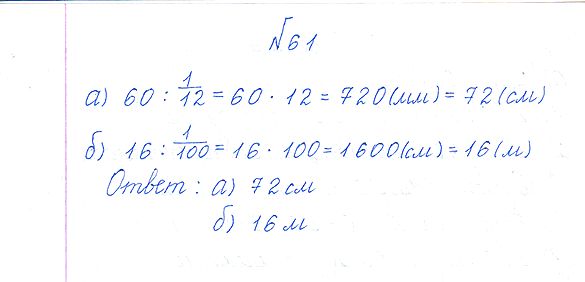 №61
а) 60 : 1/12 = 60 · 12 = 720(мм) = 72(см)
б) 16 : 1/100 = 16 · 100 = 1600(см) = 16(м)
Ответ : а) 72 см
б) 16 м